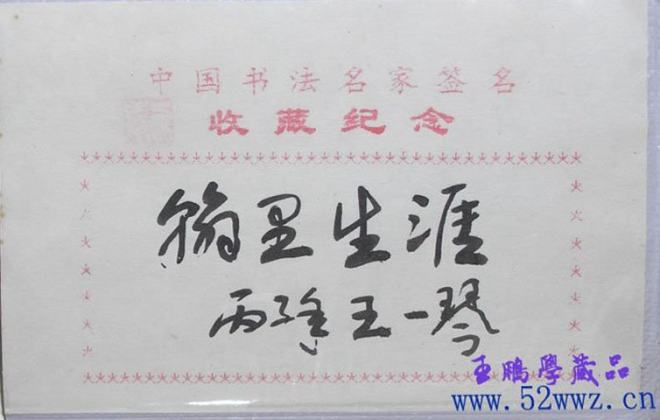 中国书法名家签名
收藏纪念
翰墨生涯
丙子冬 王一琴
王鵬學藏品
www.52wwz.cn